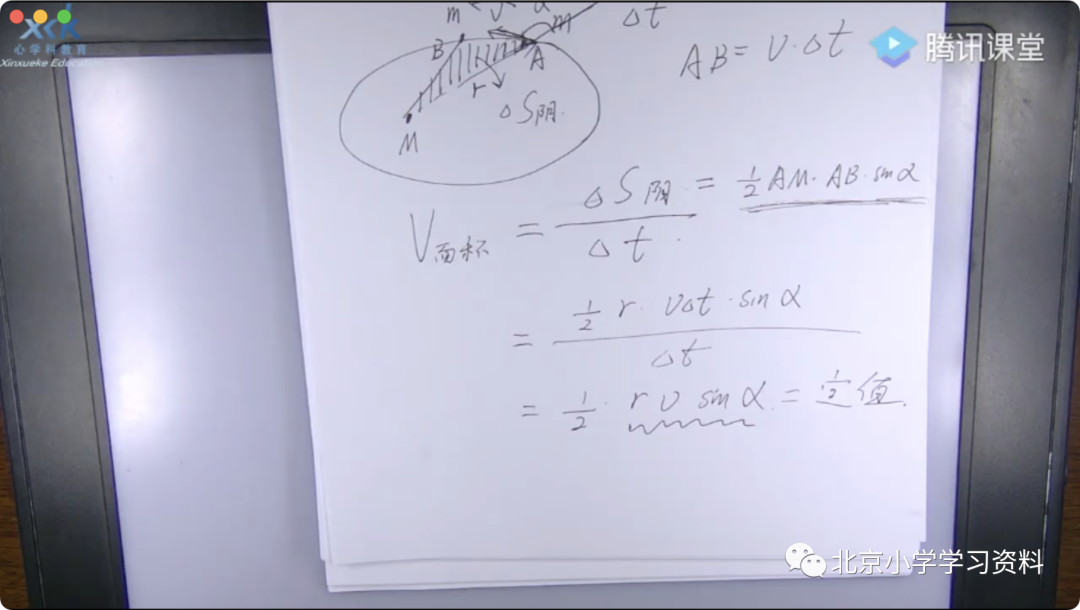 xxk
心学科教育
Xinxueke Education
腾讯课堂
m
v
α
m
Δt
B
A
AB = v·Δt
r
ΔS阴.
M
V面积 = ΔS阴 / Δt = 1/2 AM·AB·sinα
= 1/2 r·vΔt·sinα / Δt
= 1/2· r v sinα = 定值.
北京小学学习资料